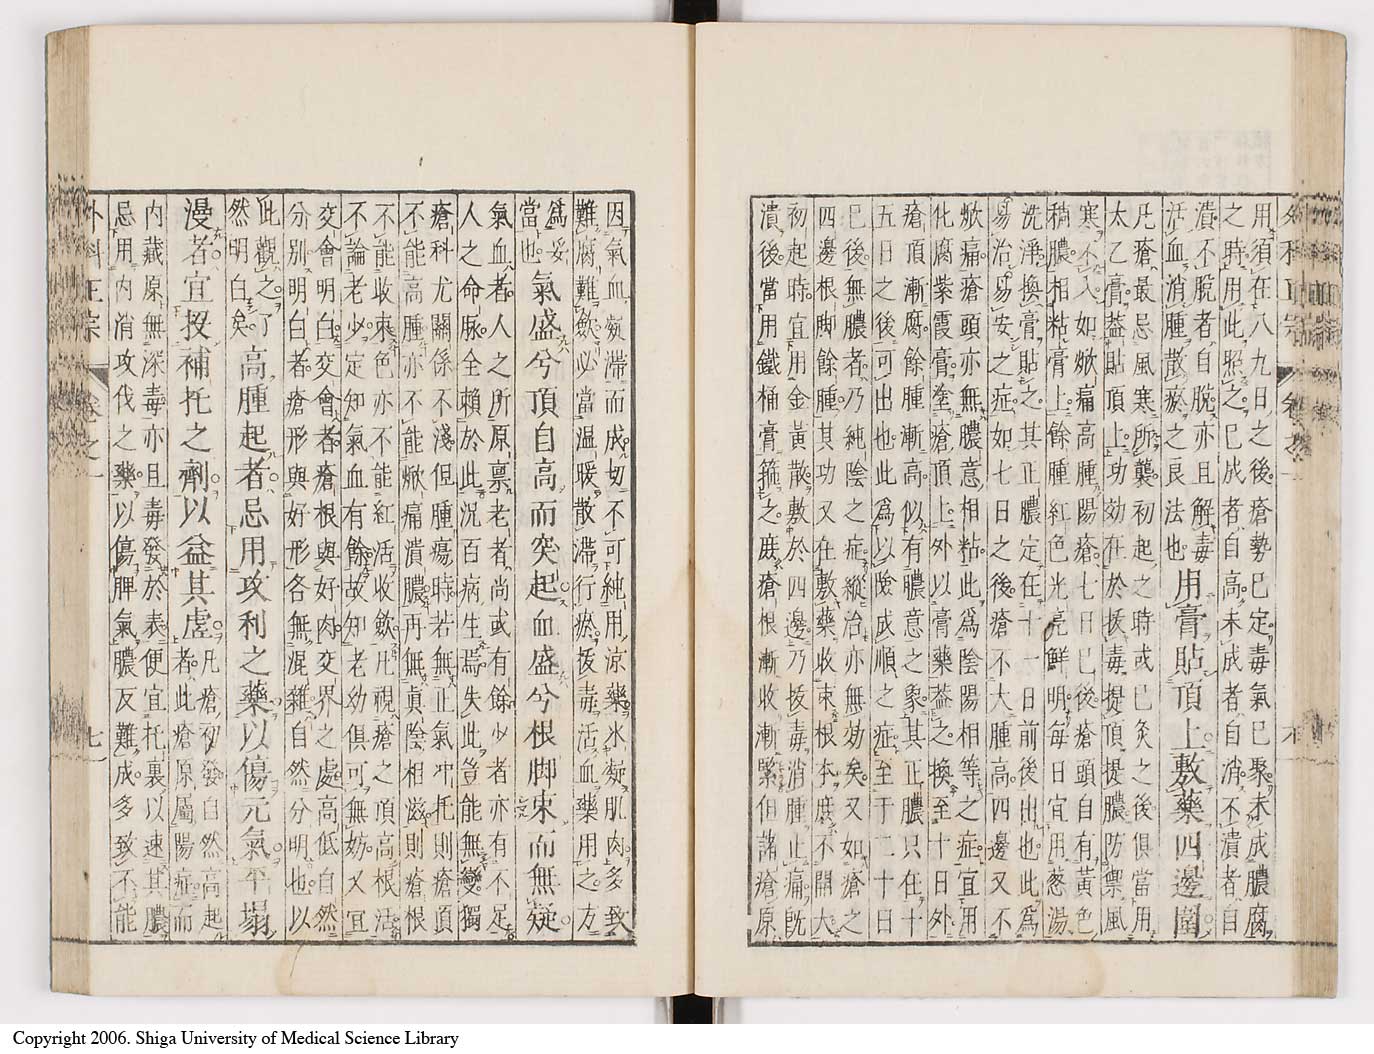 外科正宗 卷之一
用須在八九日之後瘡勢巳定毒氣巳聚未成膿腐
之時用此照之巳成者自高未成者自消不潰者自
潰不脫者自脫亦且解毒
活血消腫散瘀之良法也
用膏貼頂上敷藥四邊圍
凡瘡最忌風寒所襲初起之時或巳灸之後俱當用
太乙膏葢貼頂上功効在於拔毒提頂提膿防禦風
寒不入如焮痛高腫陽瘡七日巳後瘡頭自有黃色
稠膿相粘膏上餘腫紅色光亮鮮明每日宜用葱湯
洗淨換膏貼之其正膿定在十一日前後出也此爲
易治易安之症如七日之後瘡不大腫高四邊又不
焮痛瘡頭亦無膿意相粘此爲陰陽相等之症宜用
化腐紫霞膏塗瘡頂上外以膏藥葢之換至十日外
瘡頂漸腐餘腫漸高似有膿意之象其正膿只在十
五日之後可出也此爲以險成順之症至于二十日
巳後無膿者乃純陰之症縱治亦無効矣又如瘡之
四邊根脚餘腫其功又在敷藥收束根本庶不開大
初起時宜用金黃散敷於四邊乃拔毒消腫止痛旣
潰後當用鐵桶膏箍之庶瘡根漸收漸緊但諸瘡原
因氣血凝滯而成切不可純用涼藥冰凝肌肉多致
難腐難歛必當温暖散滯行瘀拔毒活血藥用之方
爲妥
當也
氣盛兮頂自高而突起血盛兮根脚束而無疑
氣血者人之所原禀老者尚或有餘少者亦有不足
人之命脉全賴於此况百病生焉失此豈能無變獨
瘡科尤關係不淺但腫瘍時若無正氣冲托則瘡頂
不能高腫亦不能焮痛潰膿再無眞陰相滋則瘡根
不能收束色亦不能紅活收歛凡視瘡之頂高根活
不論老少定知氣血有餘故知老幼俱可無妨又宜
交會明白交會者瘡根與好肉交界之處高低自然
分別明白者瘡形與好形各無混雜自然分明也以
此觀之了
然明白矣
高腫起者忌用攻利之藥以傷元氣平塌
漫者宜投補托之劑以益其虛
凡瘡初發自然高起
者此瘡原屬陽症而
内藏原無深毒亦且毒發於表便宜托裏以速其膿
忌用内消攻伐之藥以傷脾氣膿反難成多致不能
外科正宗 卷之一 七
Copyright 2006. Shiga University of Medical Science Library